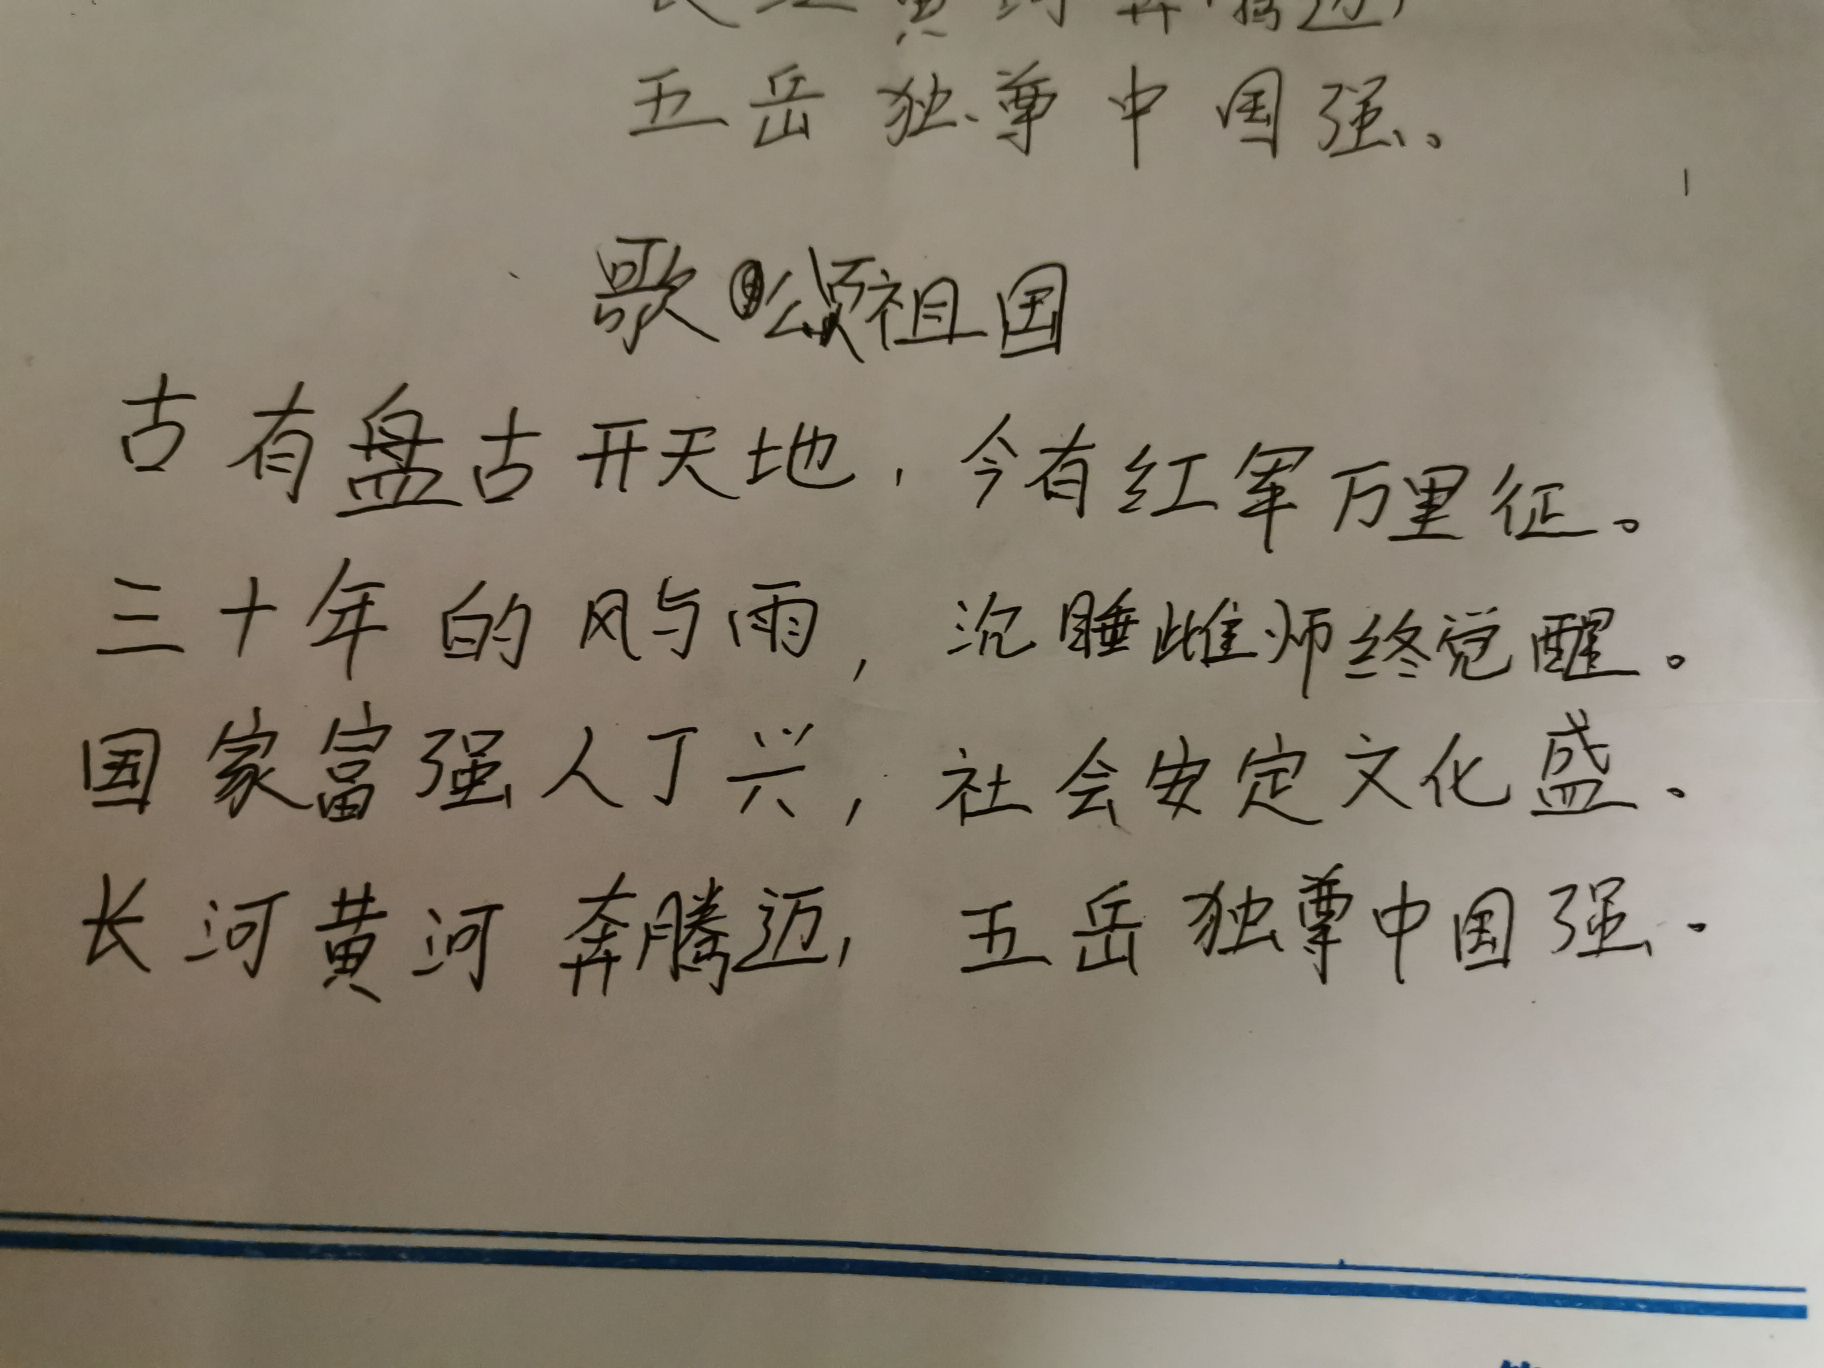 长江黄河奔腾迈,
五岳独尊中国强。
歌颂祖国
古有盘古开天地,今有红军万里征。
三十年的风与雨,沉睡雌师终觉醒。
国家富强人丁兴,社会安定文化盛.
长河黄河奔腾迈,五岳独尊中国强.